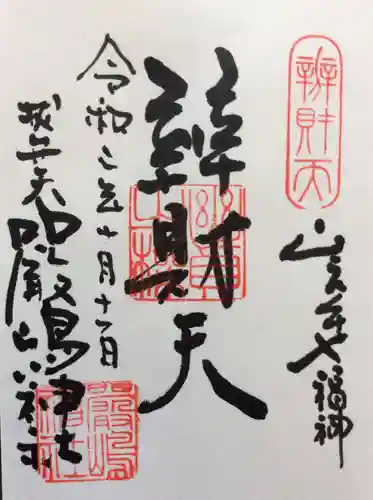 辨財天
山之手七福神
辨財天
令和二年十月十一日
抜弁天 嚴嶋神社
嚴嶋神社